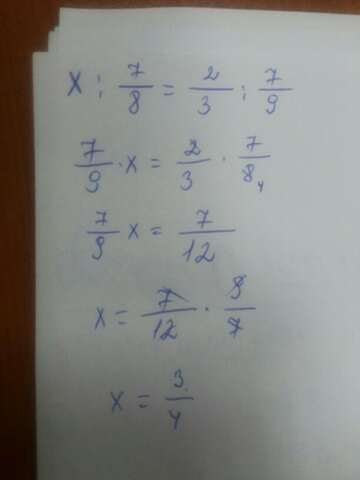 x : 7/8 = 2/3 : 7/9
7/9 · x = 2/3 · 7/8 4
7/9 x = 7/12
x = 7/12 · 9/7
x = 3/4